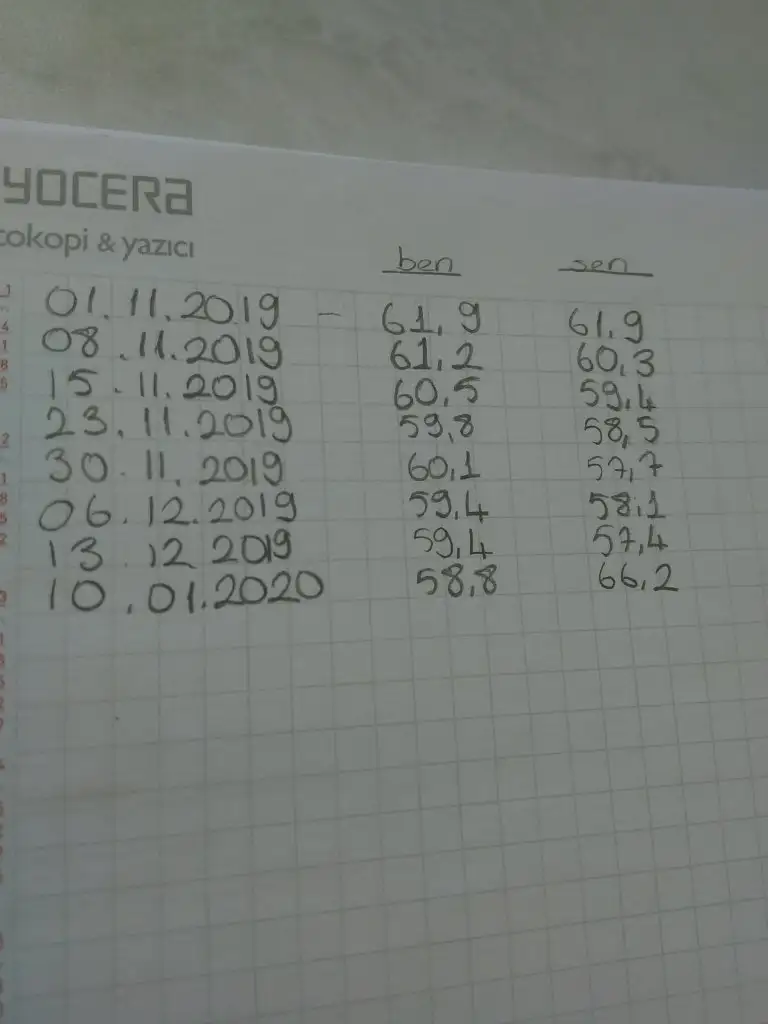 YOCERA
tokopi & yazıcı
ben sen
01.11.2019 - 61,9 61,9
08.11.2019 61,2 60,3
15.11.2019 60,5 59,4
23.11.2019 59,8 58,5
30.11.2019 60,1 57,7
06.12.2019 59,4 58,1
13.12 2019 59,4 57,4
10.01.2020 58,8 66,2